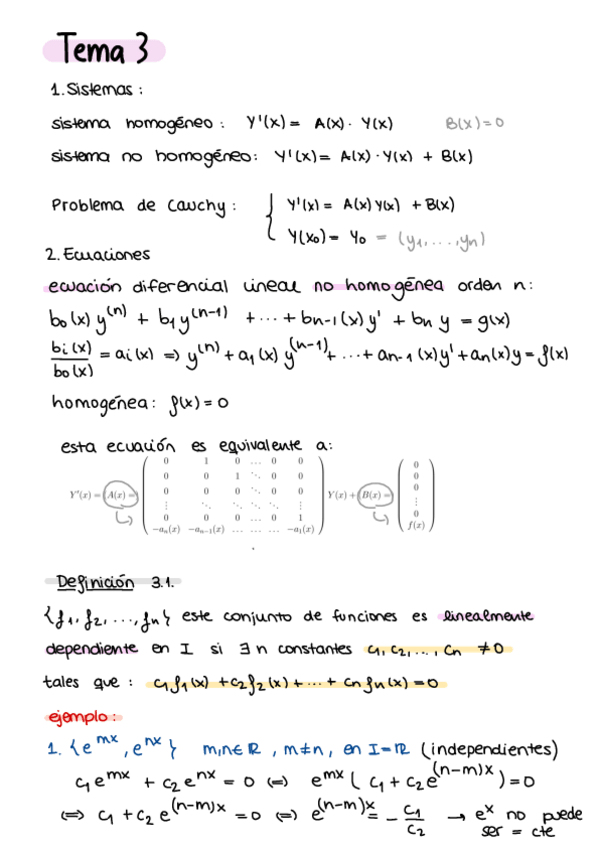 Tema 3
1. Sistemas:
sistema homogéneo: Y'(x) = A(x)· Y(x) B(x)=0
sistema no homogéneo: Y'(x) = A(x)·Y(x) + B(x)
Problema de Cauchy: { Y'(x) = A(x) Y(x) + B(x)
Y(x₀) = Y₀ = (y₁,...,yn)
2. Ecuaciones
ecuación diferencial lineal no homogénea orden n:
b₀(x) y⁽ⁿ⁾ + b₁ y⁽ⁿ⁻¹⁾ + ··· + bn-1(x) y' + bn y = g(x)
bi(x)/b₀(x) = ai(x) => y⁽ⁿ⁾ + a₁(x) y⁽ⁿ⁻¹⁾ + ... + an-1(x)y' + an(x)y = f(x)
homogénea: f(x) = 0
esta ecuación es equivalente a:
0 1 0 ... 0 0 0
0 0 1 ⋱ 0 0 0
Y'(x) = A(x) = 0 0 0 ⋱ 0 0 Y(x) + B(x) = 0
⋮ ⋱ ⋱ ⋱ ⋱ ⋮ ⋮
0 0 0 ... 0 1 0
-aₙ(x) -aₙ₋₁(x) ... ... ... -a₁(x) f(x)
Definición 3.1.
{f₁, f₂, ..., fn} este conjunto de funciones es linealmente
dependiente en I si ∃ n constantes c₁, c₂, ..., cn ≠0
tales que: c₁f₁(x) + c₂f₂(x) + ··· + cn fn(x) = 0
ejemplo:
1. {e^mx, e^nx} m,n∈ℝ, m≠n, en I=ℝ (independientes)
c₁e^mx + c₂e^nx = 0 <=> e^mx (c₁ + c₂e^(n-m)x) = 0
<=> c₁ + c₂ e^(n-m)x = 0 <=> e^(n-m)x = - c₁/c₂ → e^x no puede
ser = cte